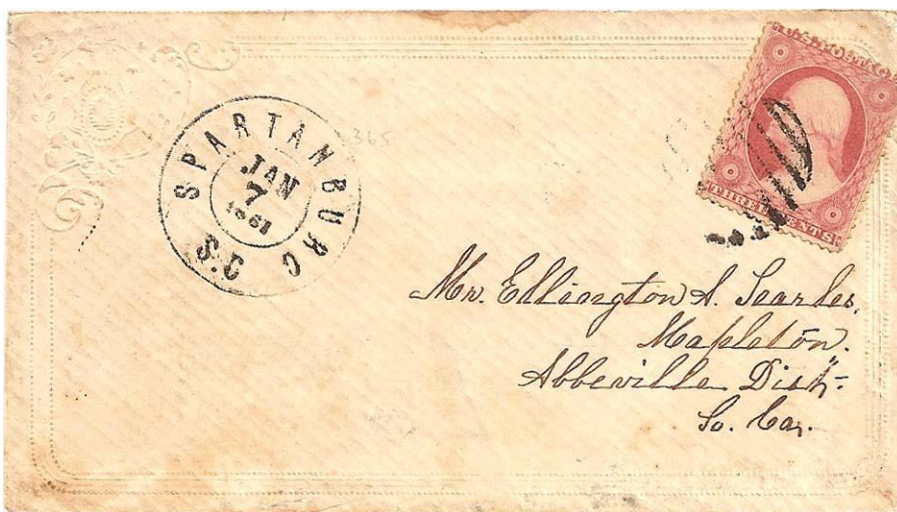 SPARTANBURG
S.C
JAN
7
1861
365
THREE CENTS
Mr. Ellington A. Searles,
Mapleton.
Abbeville Dist.
So. Car.